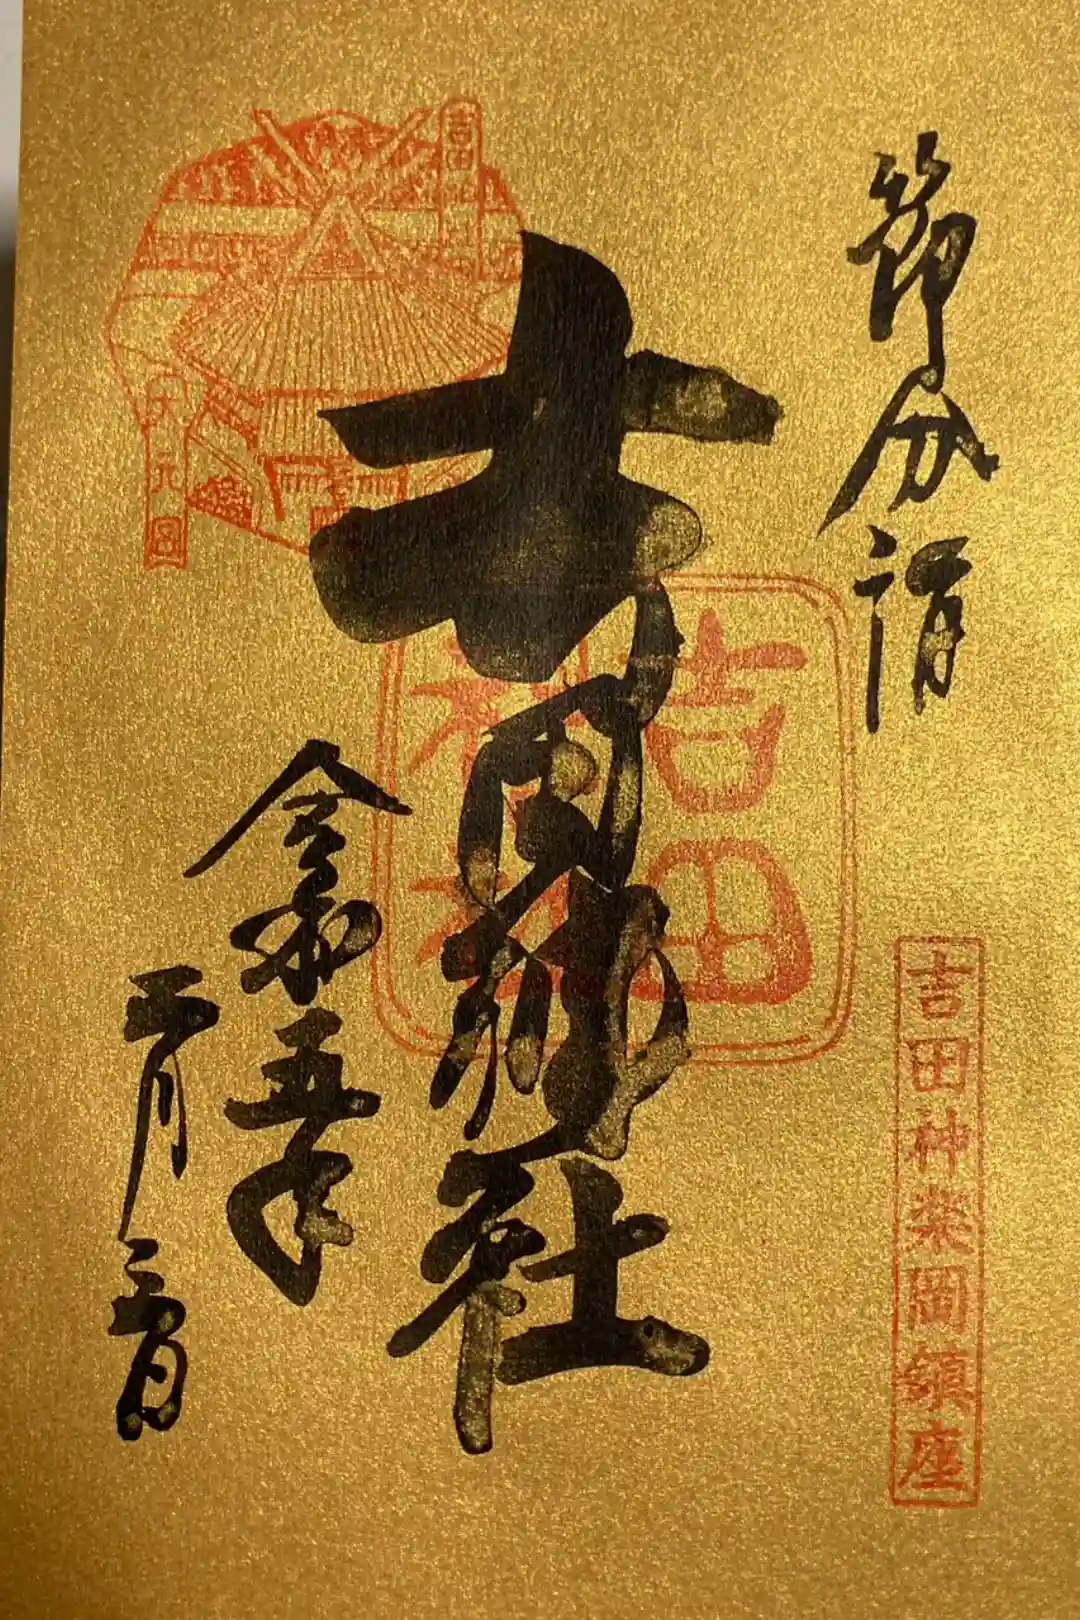 節分詣
吉田神楽岡鎮座
吉田神社
吉田
神社
吉田
大元宮
令和五年
二月三日